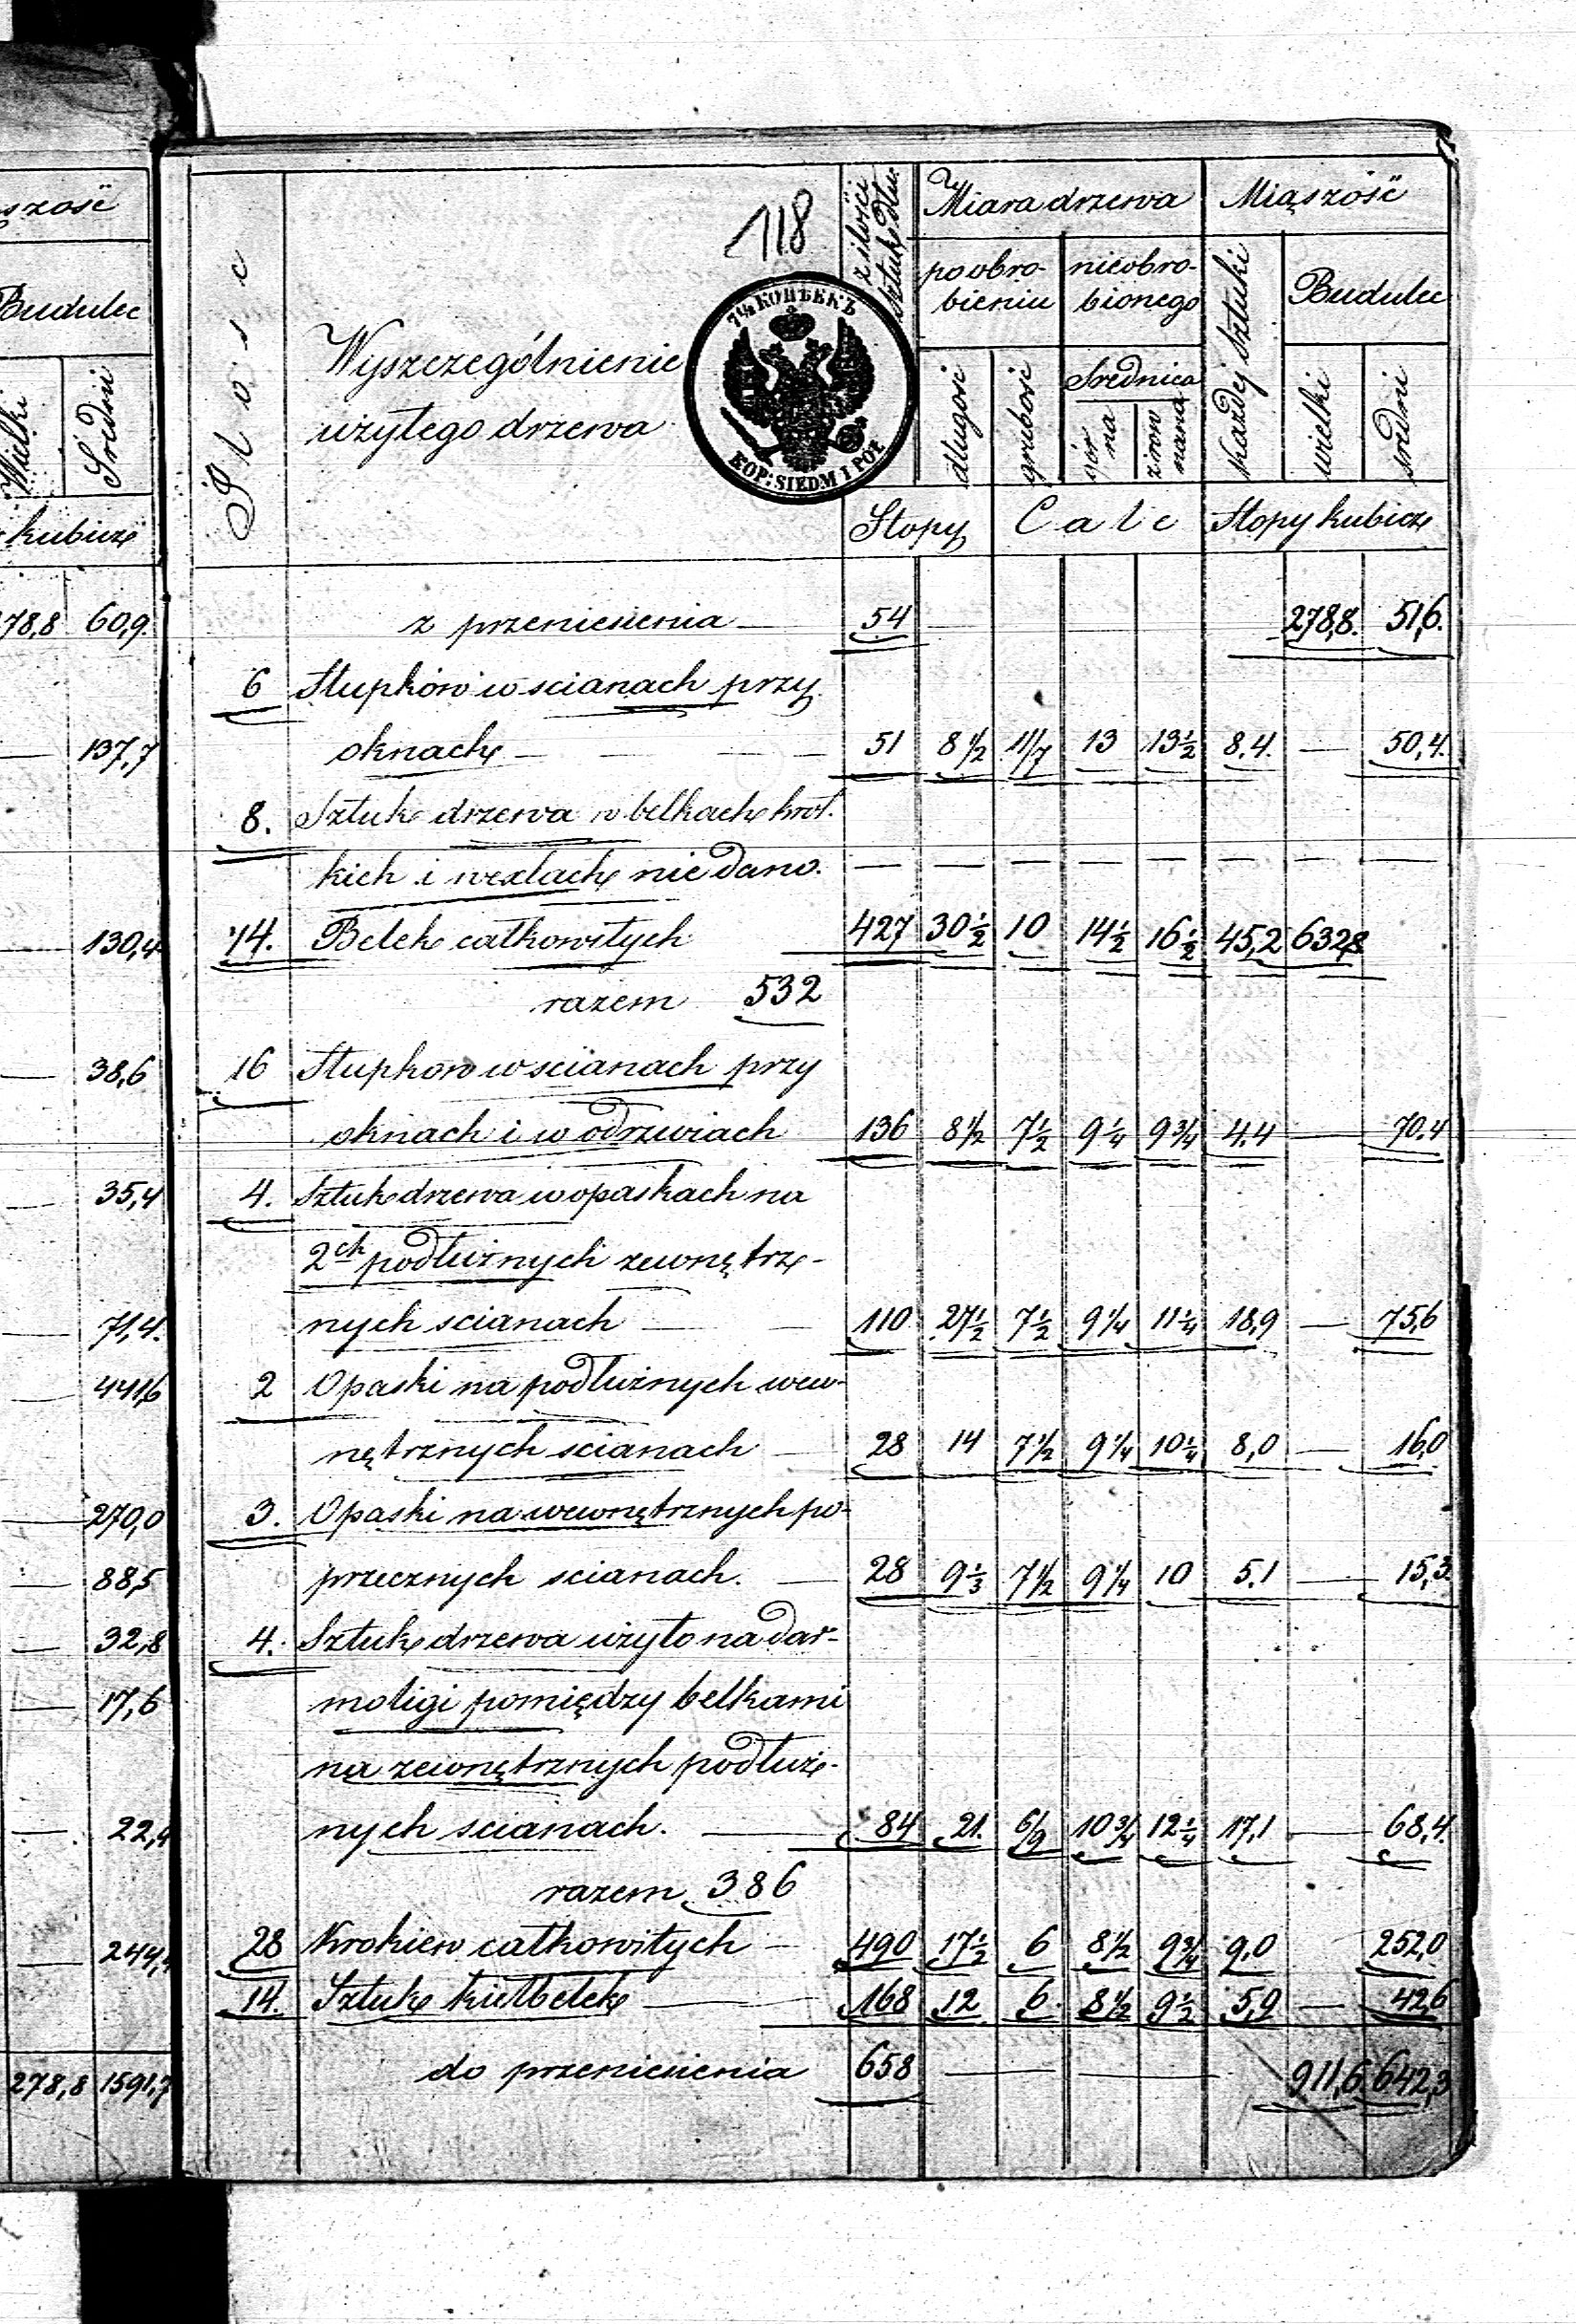 szość
Budulec
Wielki Średni
kubicz
78,8 60,9.
— 137,7
— 130,4
— 38,6
— 35,4
— 71,4.
— 441,6
— 270,0
— 88,5
— 32,8
— 17,6
— 22,4
— 244,4
278,8 1591,7
118
7½ КОПѢЕКЪ
KOP: SIEDM I PÓŁ
Ilosc
Wyszczególnienie
użytego drzewa
z ilości sztuk dłu.
Miara drzewa Miąszość
po obro-
bieniu
nieobro-
bionego
każdej sztuki
Budulec
długość grubość
Srednica
gór
na
zrów
nana
wielki sredni
Stopy Cale Stopy kubicz
z przeniesienia — 54 278,8. 51,6.
6 Słupków w scianach przy
oknach — 51 8½ 11/7 13 13½ 8.4. — 50,4.
8. Sztuk drzewa w belkach krót.
kich i wexlach nie dano. — — — — — — — —
14. Belek całkowitych 427 30½ 10 14½ 16½ 45,2 632,8
razem 532
16 Słupkow w scianach przy
oknach i w odrzwiach 136 8½ 7½ 9¼ 9¾ 4.4 — 70.4
4. Sztuk drzewa w opaskach na
2ch podłużnych zewnętrz-
nych scianach — 110 27½ 7½ 9¼ 11¼ 18,9 — 75,6
2 Opaski na podłużnych wew-
nętrznych scianach — 28 14 7½ 9¼ 10¼ 8,0 — 16,0
3. Opaski na wewnętrznych po-
przecznych scianach. — 28 9⅓ 7½ 9¼ 10 5.1 — 15,3.
4. Sztuk drzewa użyto na dar-
moligi pomiędzy belkami
na zewnętrznych podłuż-
nych scianach. — 84 21. 6/9 10¾ 12¼ 17,1 — 68,4.
razem 386
28 Krokiew całkowitych — 490 17½ 6 8½ 9¾ 9,0 252,0
14. Sztuk kielbelek — 168 12 6 8½ 9½ 5,9 — 42,6
do przeniesienia 658 — — 911,6 642,3